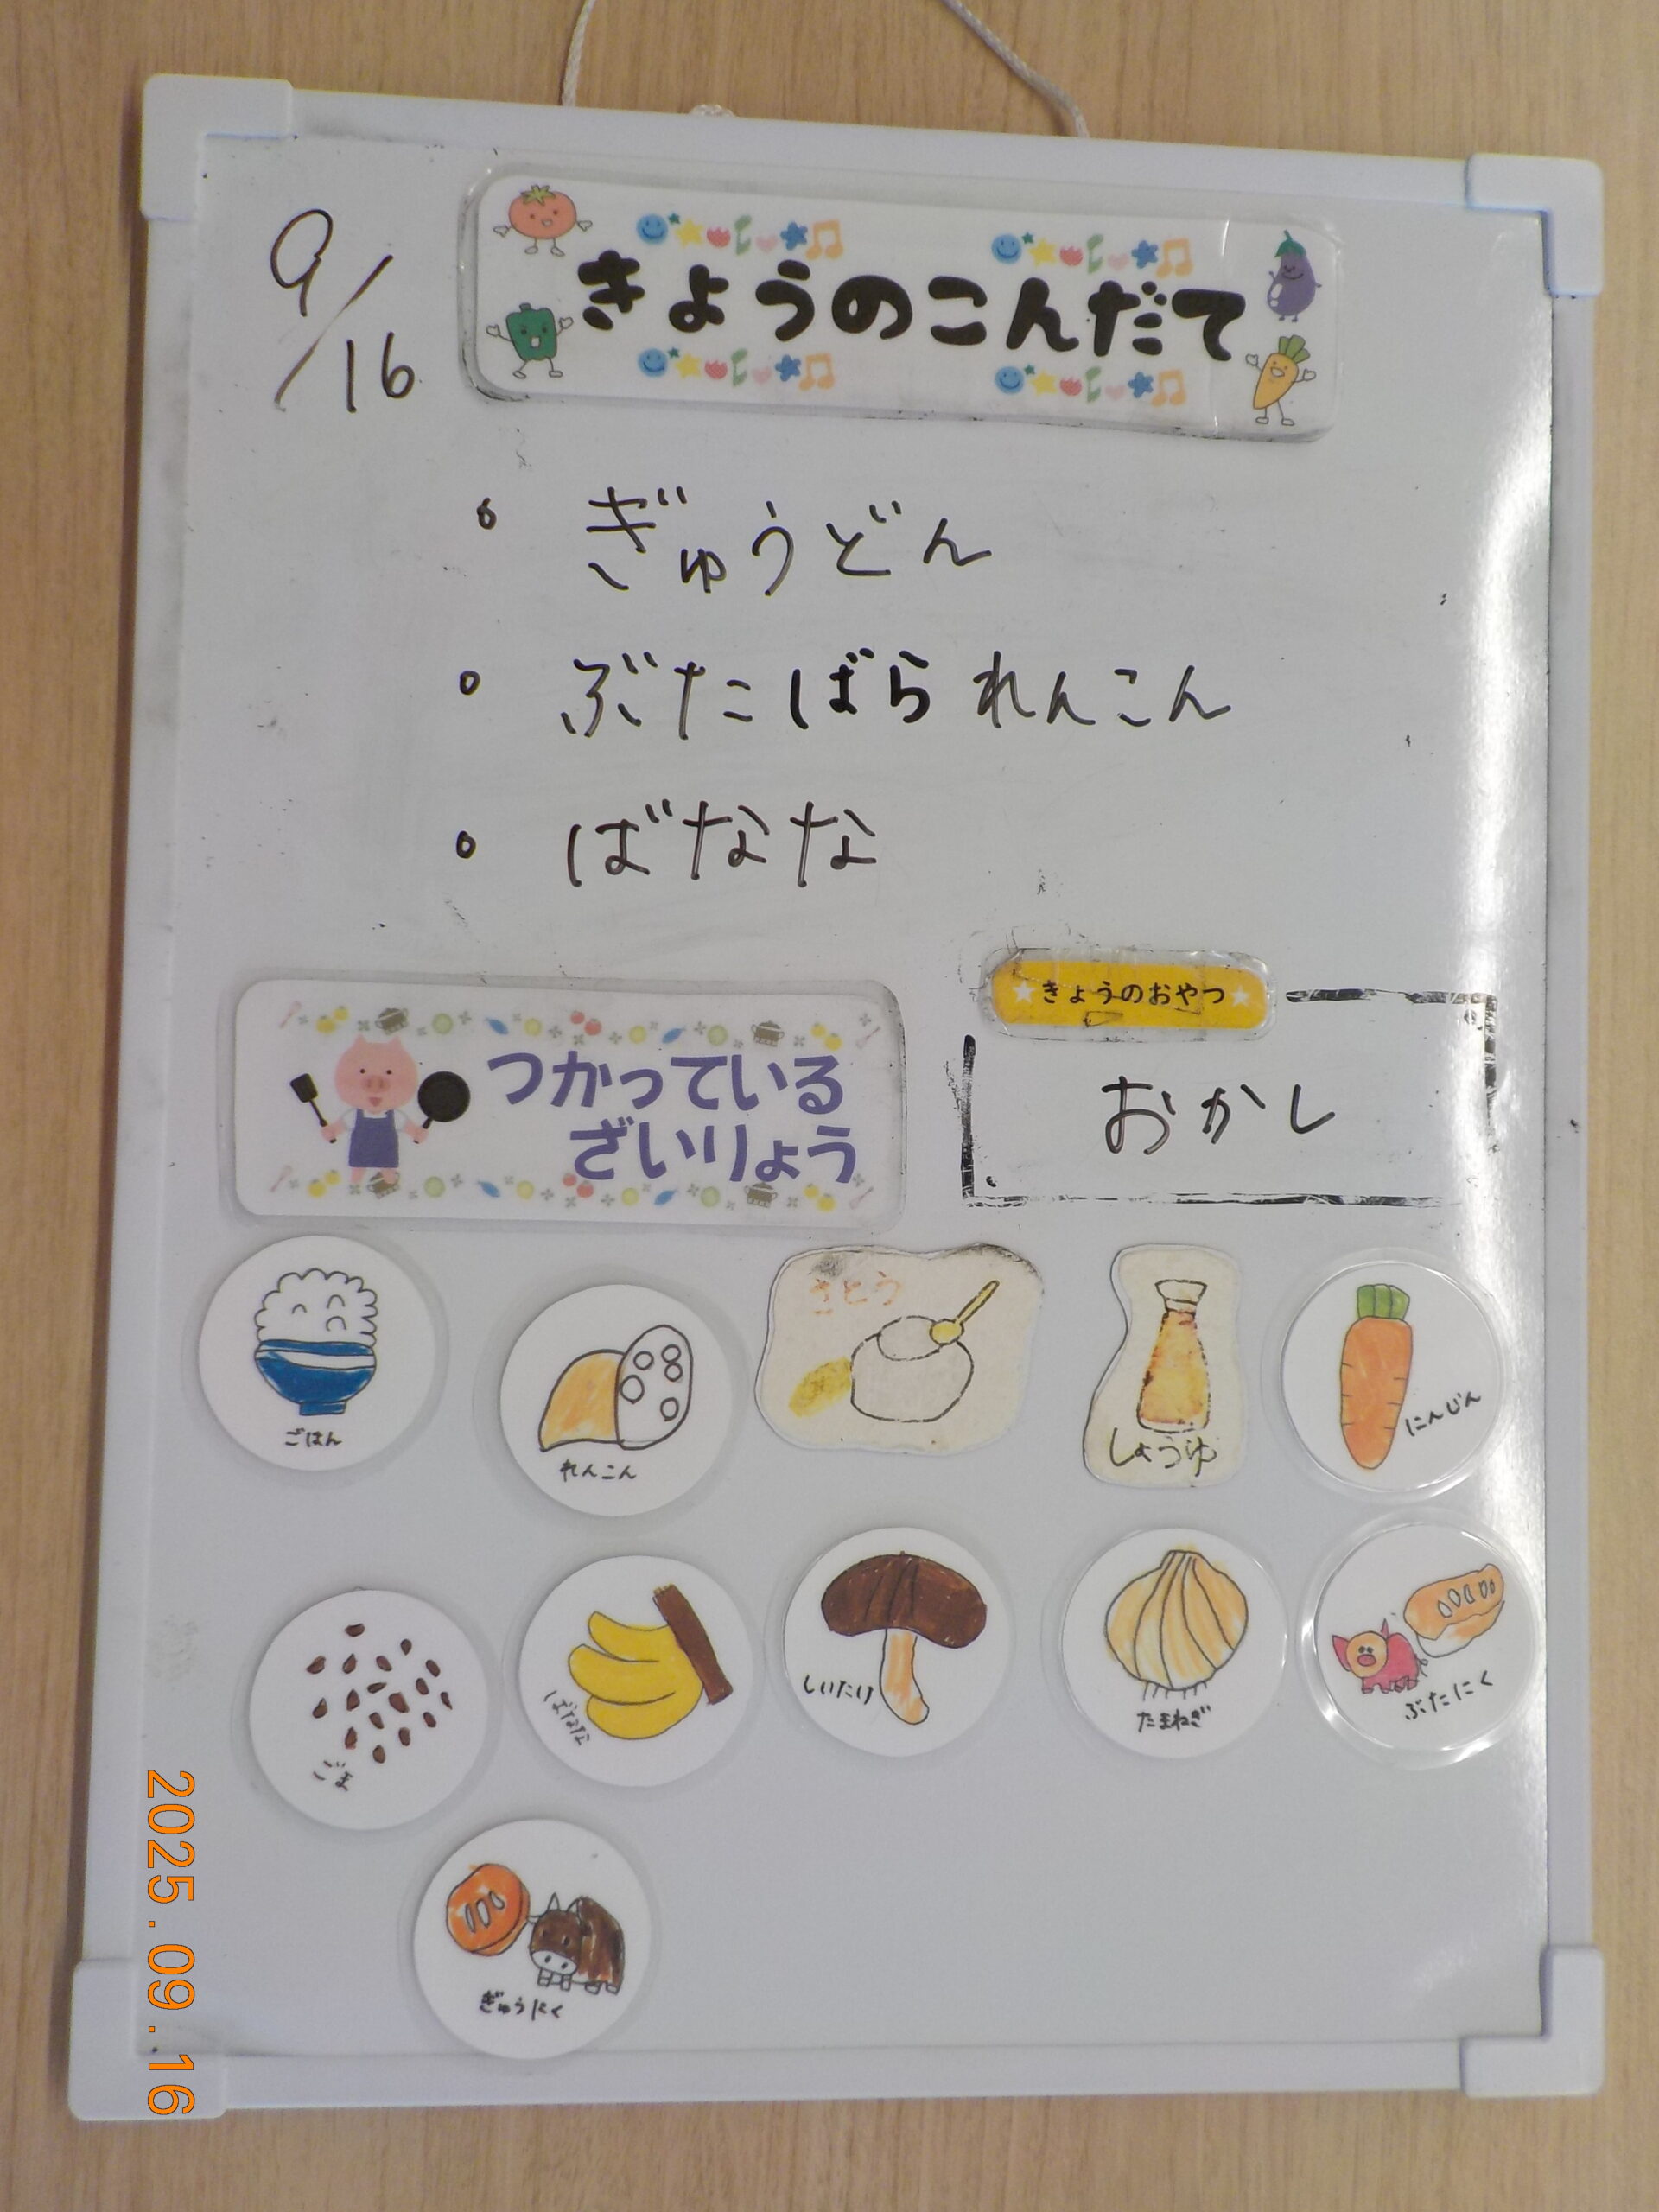 9/16
きょうのこんだて
• ぎゅうどん
• ぶたばられんこん
• ばなな
きょうのおやつ
おかし
つかっている
ざいりょう
ごはん
れんこん
さとう
しょうゆ
にんじん
ごま
ばなな
しいたけ
たまねぎ
ぶたにく
ぎゅうにく
2025.09.16